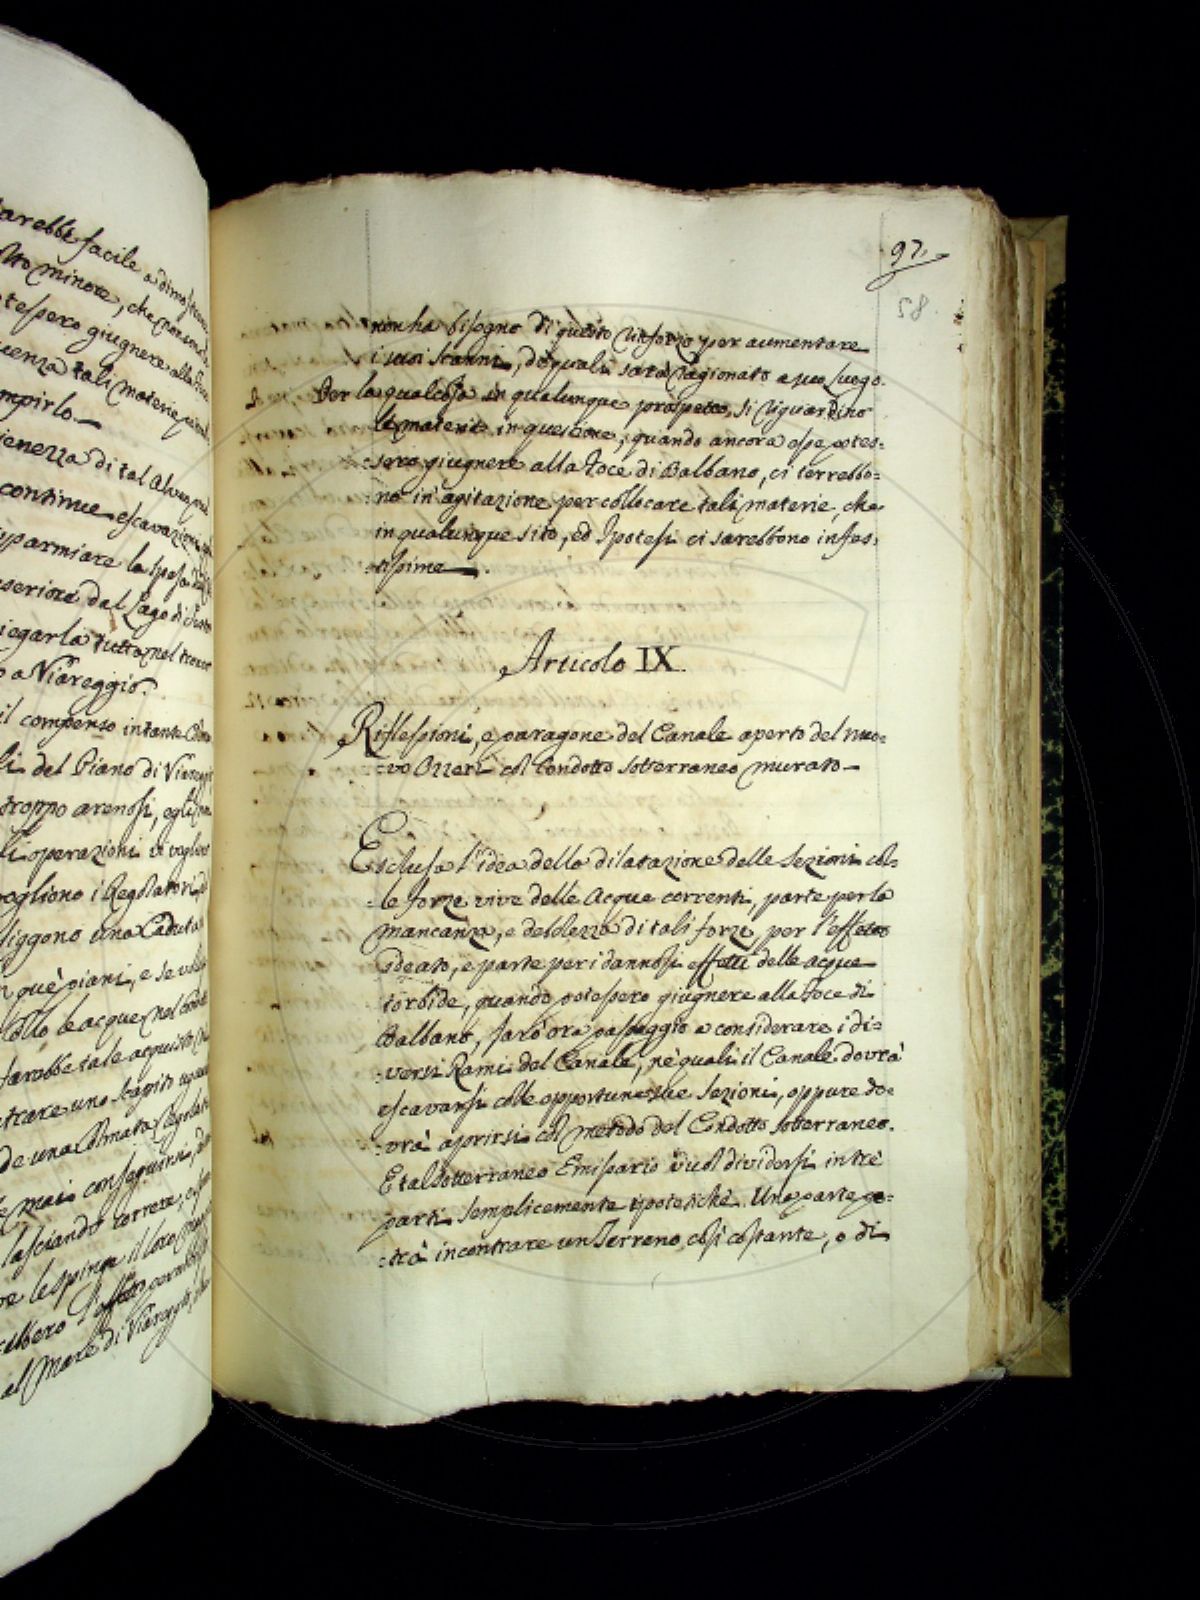 arebbe facile a dimostrare
minore, che non
potessero giugnere alla
tali materie
empirlo.
di tal Alveo
continue escavazioni
sparmiare la spesa
del Lago di
iegarla tutta nel
o a Viareggio.
il compenso in tante
li del Piano di Viareggio
troppo arenosi, egli
li operazioni vi vogliono
vogliono i Regolatori
iggono una Caduta
què piani, e se
ollo le acque nel
sarebbe tale acquisto
una
mai conseguirsi,
lasciando correre,
ve le spinga il loro
libero l'effetto
al Mare di Viareggio,
97.
58.
non ha bisogno di questo rinforzo per aumentare
i suoi Scanni, de quali sarà ragionato a suo luogo.
Per la qualcosa in qualunque prospetto, si riguardino
le materie in questione, quando ancora esse potes-
:sero giugnere alla Foce di Balbano, ci terrebbo-
:no in agitazione per collocare tali materie, che
in qualunque sito, ed Ipotesi ci sarebbono infes-
:tissime.
Articolo IX.
Riflessioni, e paragone del Canale aperto del nuo-
:vo Ozzeri col Condotto sotterraneo murato
Esclusa l'idea della dilatazione delle Sezioni col-
:le forze vive delle Acque correnti, parte per la
mancanza, e debolezza di tali forze, per l'effetto
ideato, e parte per i dannosi effetti delle acque
torbide, quando potessero giugnere alla Foce di
Balbano, farò ora passaggio a considerare i di-
:versi Rami del Canale, ne' quali il Canale dovrà
escavarsi colle opportune sue Sezioni, oppure do-
:vrà aprirsi col metodo del Condotto sotterraneo.
E tal sotterraneo Emissario vuol dividersi in trè
parti semplicemente ipotetiche. Una parte po-
:trà incontrare un Terreno così costante, o di